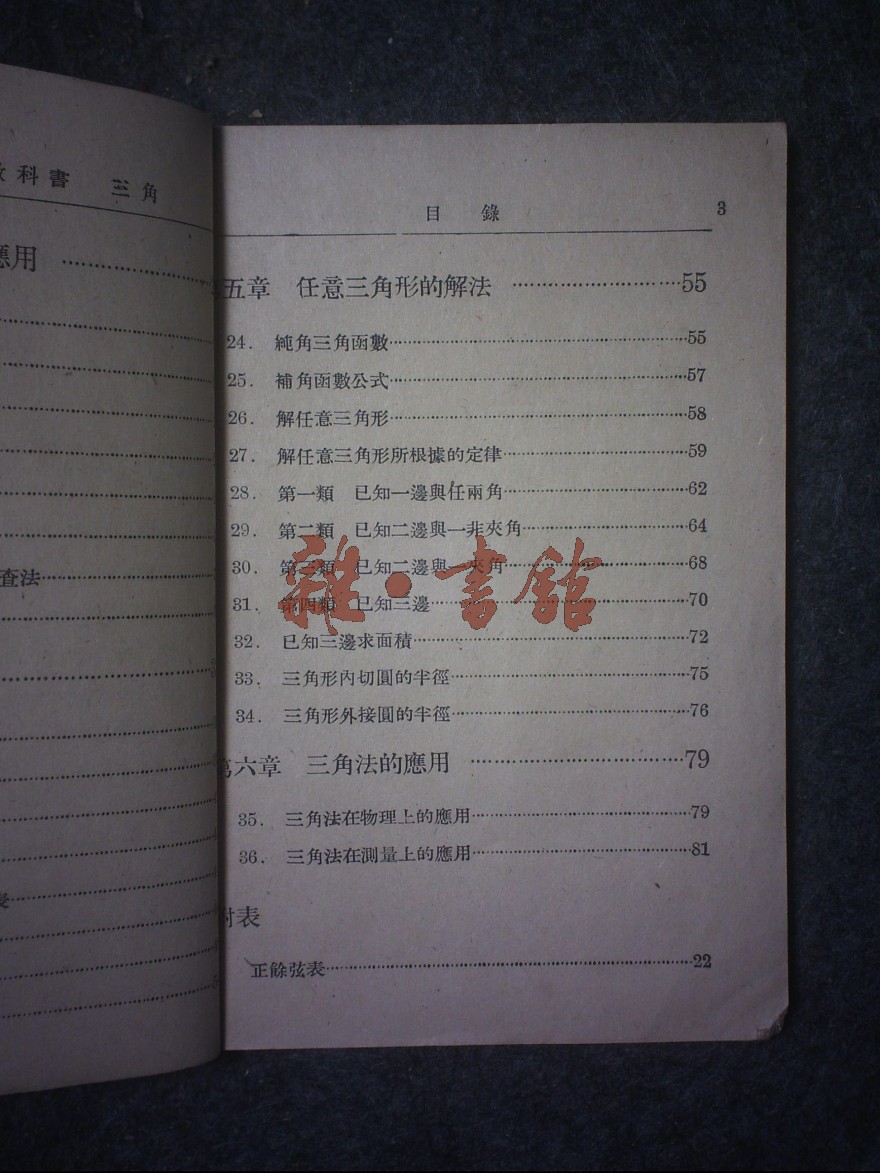 科書 三角
應用
查法
目錄 3
五章 任意三角形的解法 ························55
24. 純角三角函數························55
25. 補角函數公式························57
26. 解任意三角形························58
27. 解任意三角形所根據的定律························59
28. 第一類 已知一邊與任兩角························62
29. 第二類 已知二邊與一非夾角························64
30. 第三類 已知二邊與一夾角························68
31. 第四類 已知三邊························70
32. 已知三邊求面積························72
33. 三角形內切圓的半徑························75
34. 三角形外接圓的半徑························76
六章 三角法的應用 ························79
35. 三角法在物理上的應用························79
36. 三角法在測量上的應用························81
附表
正餘弦表························22
雜·書館